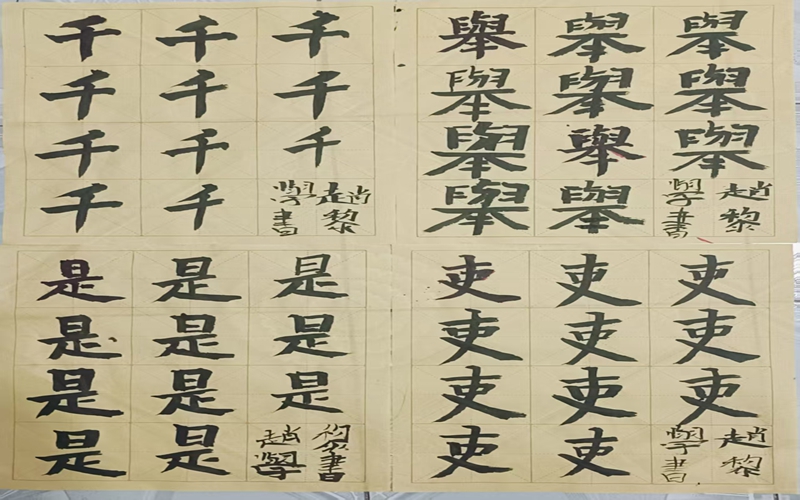 千千千
千千千
千千千
千千
趙黎
學書
舉舉舉
舉舉舉
舉舉舉
舉舉
趙黎
學書
是是是
是是是
是是是
是是
書
趙學
吏吏吏
吏吏吏
吏吏吏
吏吏
趙黎
學書